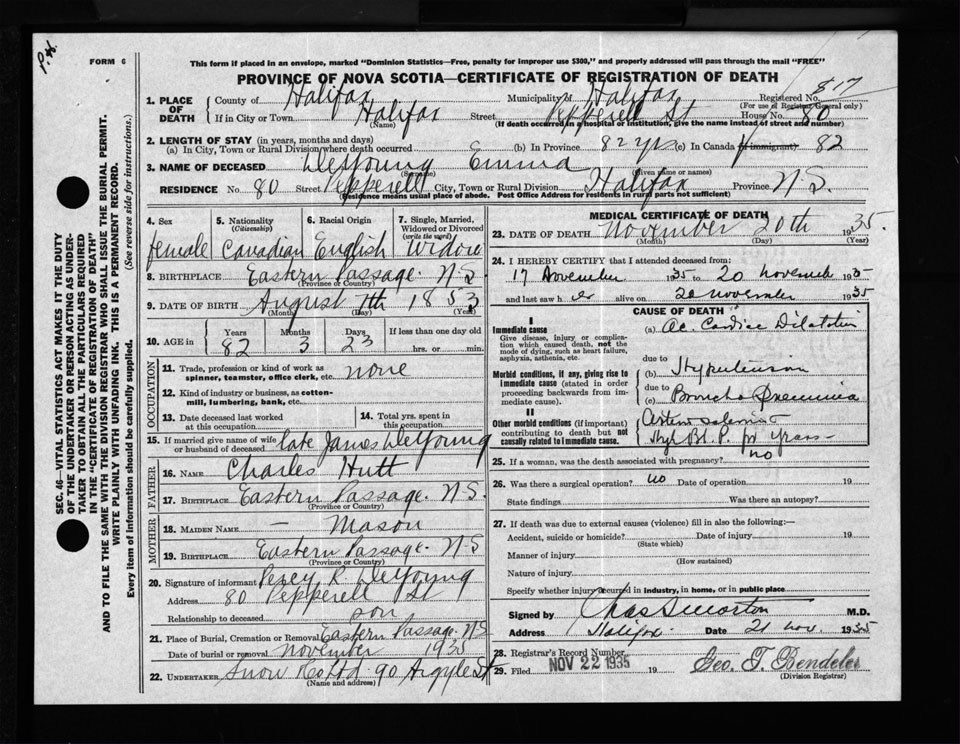 P.H.
FORM 6
This form if placed in an envelope, marked "Dominion Statistics—Free, penalty for improper use $300," and properly addressed will pass through the mail "FREE"
PROVINCE OF NOVA SCOTIA—CERTIFICATE OF REGISTRATION OF DEATH
1. PLACE OF DEATH County of Halifax Municipality of Halifax Registered No. 817
(For use of Registrar General only)
If in City or Town Halifax Street Pepperell St House No. 80
(Name) (If death occurred in a hospital or institution, give the name instead of street and number)
2. LENGTH OF STAY (in years, months and days)
(a) In City, Town or Rural Division where death occurred (b) In Province 82 yrs (c) In Canada (if immigrant) 82
3. NAME OF DECEASED DeYoung Emma
(Surname) (Given name or names)
RESIDENCE No. 80 Street Pepperell City, Town or Rural Division Halifax Province N.S.
(Residence means usual place of abode. Post Office Address for residents in rural parts not sufficient)
4. Sex 5. Nationality (Citizenship) 6. Racial Origin 7. Single, Married, Widowed or Divorced (write the word)
female Canadian English Widow
8. BIRTHPLACE Eastern Passage. N-S
(Province or Country)
9. DATE OF BIRTH August 1853
(Month) (Day) (Year)
10. AGE in Years Months Days If less than one day old
82 3 23 hrs. or min.
OCCUPATION
11. Trade, profession or kind of work as spinner, teamster, office clerk, etc. none
12. Kind of industry or business, as cotton-mill, lumbering, bank, etc.
13. Date deceased last worked at this occupation
14. Total yrs. spent in this occupation
15. If married give name of wife or husband of deceased late James DeYoung
FATHER
16. NAME Charles Hutt
17. BIRTHPLACE Eastern Passage. N-S.
(Province or Country)
MOTHER
18. MAIDEN NAME — Mason
19. BIRTHPLACE Eastern Passage. N-S
(Province or Country)
20. Signature of informant Percy R. DeYoung
Address 80 Pepperell St
Relationship to deceased son
21. Place of Burial, Cremation or Removal Eastern Passage. N-S
Date of burial or removal November 1935
22. UNDERTAKER Snow Co Ltd. 90 Argyle St
(Name and address)
MEDICAL CERTIFICATE OF DEATH
23. DATE OF DEATH November 20th 1935
(Month) (Day) (Year)
24. I HEREBY CERTIFY that I attended deceased from:
17 November 1935 to 20 November 1935
and last saw h er alive on 20 November 1935
CAUSE OF DEATH
I
Immediate cause
Give disease, injury or complication which caused death, not the mode of dying, such as heart failure, asphyxia, asthenia, etc.
(a) Ac. Cardiac Dilatation
due to
Morbid conditions, if any, giving rise to immediate cause (stated in order proceeding backwards from immediate cause).
(b) Hypertension
due to
(c) Broncho Pneumonia
II
Other morbid conditions (if important) contributing to death but not causally related to immediate cause.
High Bl. P. for years—
25. If a woman, was the death associated with pregnancy? no
26. Was there a surgical operation? no Date of operation 19
State findings Was there an autopsy?
27. If death was due to external causes (violence) fill in also the following:—
Accident, suicide or homicide? Date of injury 19
(State which)
Manner of injury
(How sustained)
Nature of injury
Specify whether injury occurred in industry, in home, or in public place
Signed by Chas S Morton M.D.
Address Halifax Date 21 Nov. 1935
28. Registrar's Record Number
29. Filed NOV 22 1935 19 Geo. T. Bendeler
(Division Registrar)
SEC. 46—VITAL STATISTICS ACT MAKES IT THE DUTY
OF THE UNDERTAKER OR PERSON ACTING AS UNDER-
TAKER TO OBTAIN ALL THE PARTICULARS REQUIRED
IN THE "CERTIFICATE OF REGISTRATION OF DEATH"
AND TO FILE THE SAME WITH THE DIVISION REGISTRAR WHO SHALL ISSUE THE BURIAL PERMIT.
WRITE PLAINLY WITH UNFADING INK. THIS IS A PERMANENT RECORD.
Every item of information should be carefully supplied. (See reverse side for instructions.)